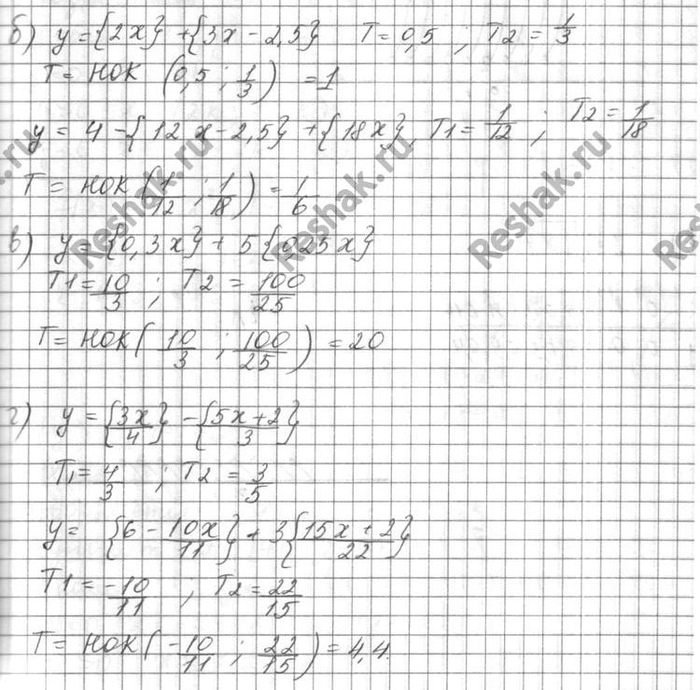 б) y = {2x} + {3x - 2,5} T = 0,5 ; T2 = 1/3
T = НОК (0,5 ; 1/3) = 1
y = 4 - {12x - 2,5} + {18x}, T1 = 1/12 ; T2 = 1/18
T = НОК (1/12 ; 1/18) = 1/6
в) y = {0,3x} + 5{0,25x}
T1 = 10/3 ; T2 = 100/25
T = НОК (10/3 ; 100/25) = 20
г) y = {3x/4} - {5x+2/3}
T1 = 4/3 ; T2 = 3/5
y = {6 - 10x/11} + 3{15x+2/22}
T1 = -10/11 ; T2 = 22/15
T = НОК (-10/11 ; 22/15) = 4,4
Reshak.ru
Reshak.ru
Reshak.ru